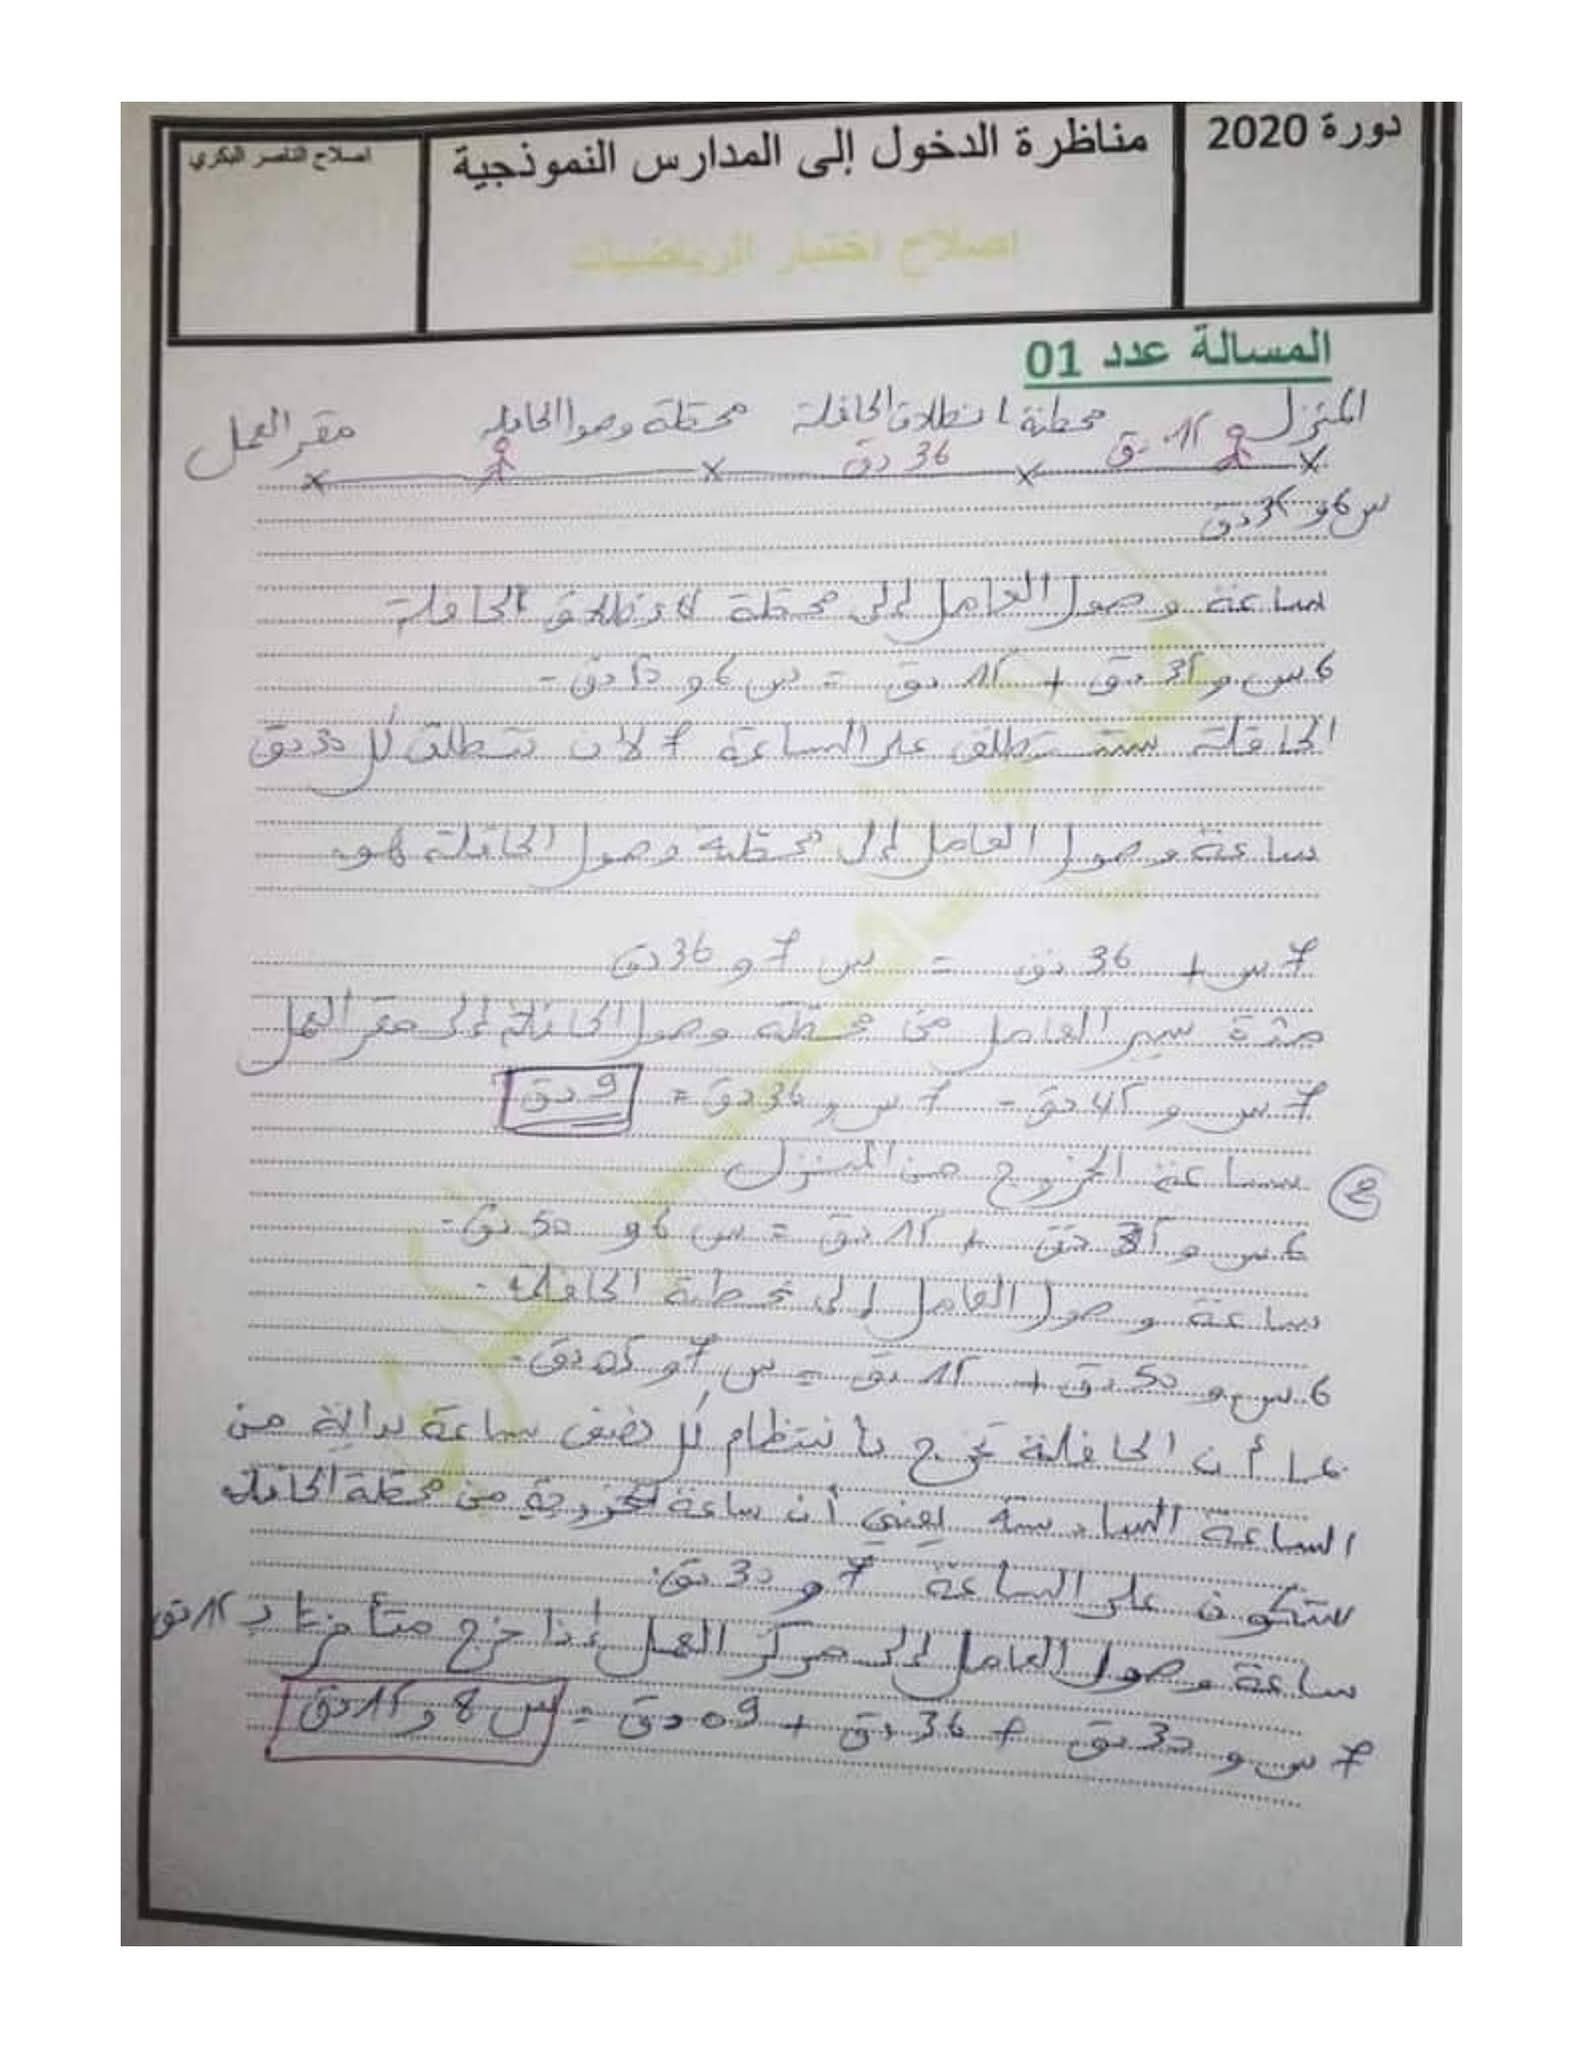 دورة 2020
مناظرة الدخول إلى المدارس النموذجية
اصلاح الناصر البكري
اصلاح اختبار الرياضيات
المسالة عدد 01
المنزل محطة انطلاق الحافلة محطة وصول الحافلة مقر العمل
15 دق 36 دق
س 6 و 35 دق
ساعة وصول العامل إلى محطة انطلاق الحافلة
6 س و 35 دق + 15 دق = س 6 و 50 دق -
الحافلة ستنطلق على الساعة 7 لأن تنطلق كل 30 دق
ساعة وصول العامل إلى محطة وصول الحافلة هو
7 س + 36 دق = س 7 و 36 دق
مدة سير العامل من محطة وصول الحافلة إلى مقر العمل
7 س و 45 دق - 7 س و 36 دق = 9 دق
2 ساعة الخروج من المنزل
6 س و 35 دق + 15 دق = س 6 و 50 دق -
ساعة وصول العامل إلى محطة الحافلة -
6 س و 50 دق + 15 دق = س 7 و 05 دق -
بما أن الحافلة تخرج بانتظام كل نصف ساعة بداية من
الساعة السادسة يعني أن ساعة الخروج من محطة الحافلة
ستكون على الساعة 7 و 30 دق.
ساعة وصول العامل إلى مركز العمل إذا خرج متأخرا بـ 15 دق
7 س و 30 دق + 36 دق + 09 دق = س 8 و 15 دق